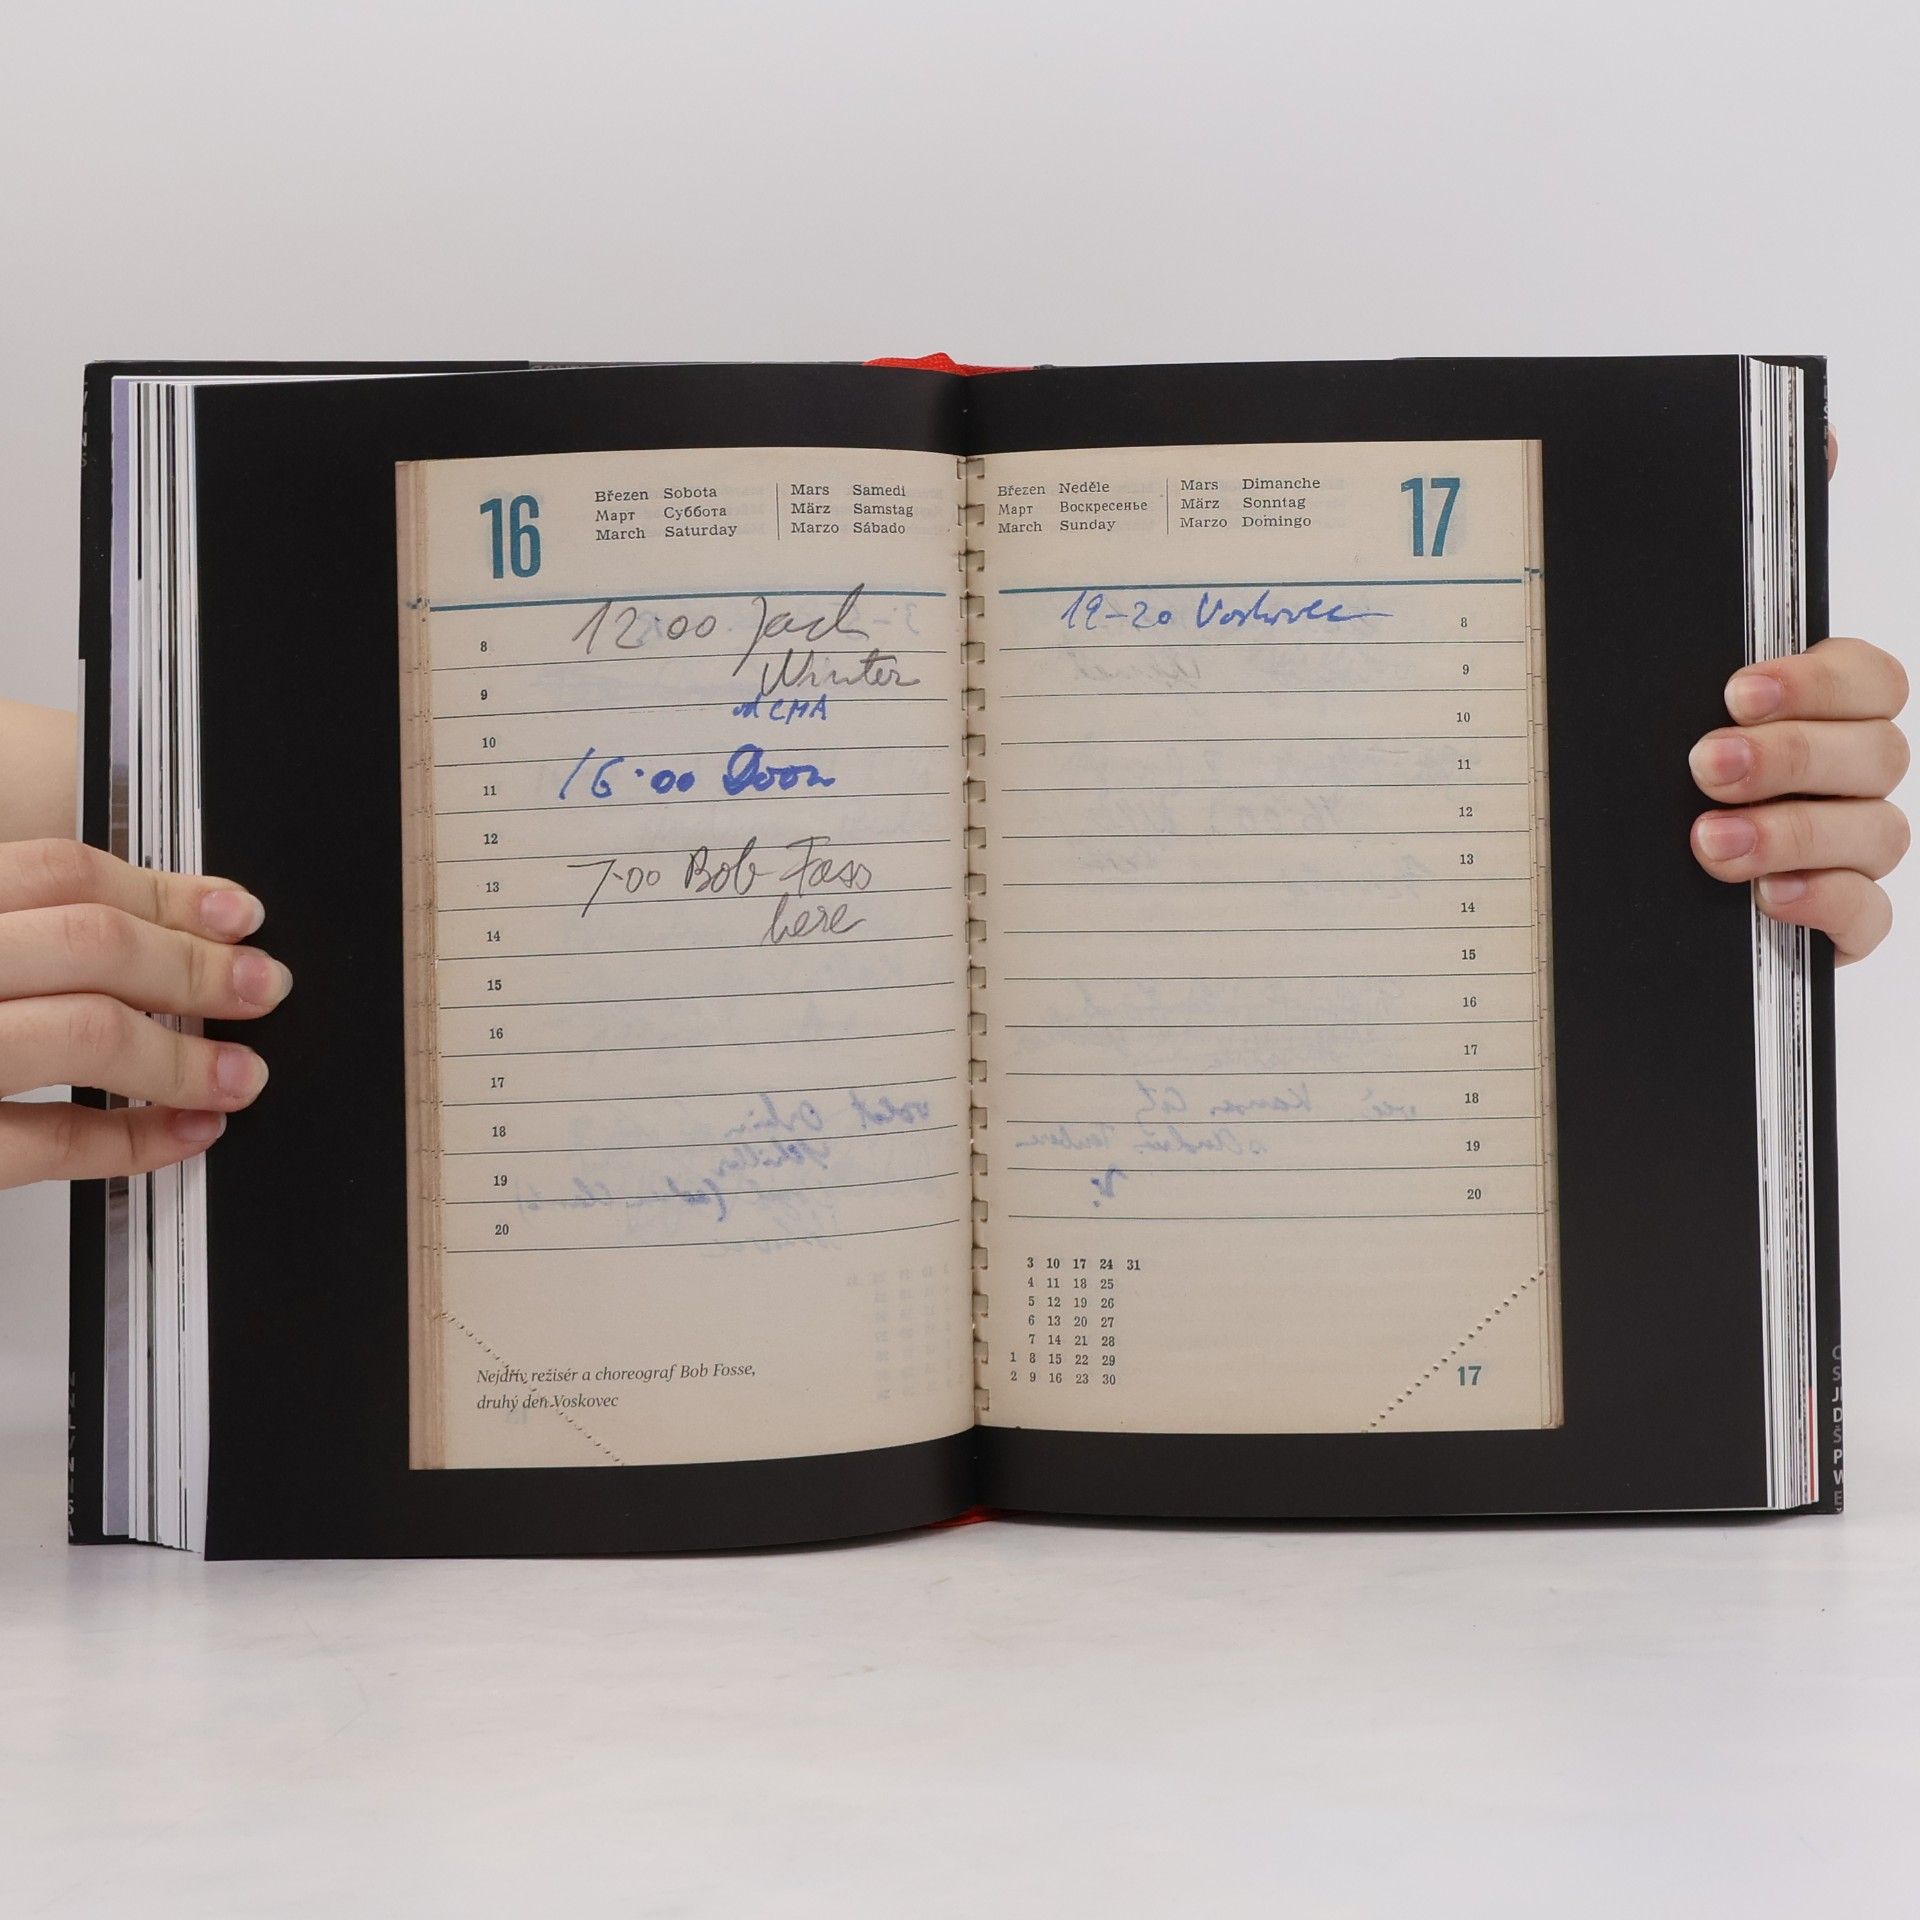 16
Březen Sobota
Март Суббота
March Saturday
Mars Samedi
März Samstag
Marzo Sábado
12:00 Jack
Winter
od CMA
16:00
7:00 Bob Foss
here
8
9
10
11
12
13
14
15
16
17
18
19
20
Nejdřív režisér a choreograf Bob Fosse,
druhý den Voskovec
Březen Neděle
Март Воскресенье
March Sunday
Mars Dimanche
März Sonntag
Marzo Domingo
17
19-20 Voskovec
8
9
10
11
12
13
14
15
16
17
18
19
20
3 10 17 24 31
4 11 18 25
5 12 19 26
6 13 20 27
7 14 21 28
1 8 15 22 29
2 9 16 23 30
17